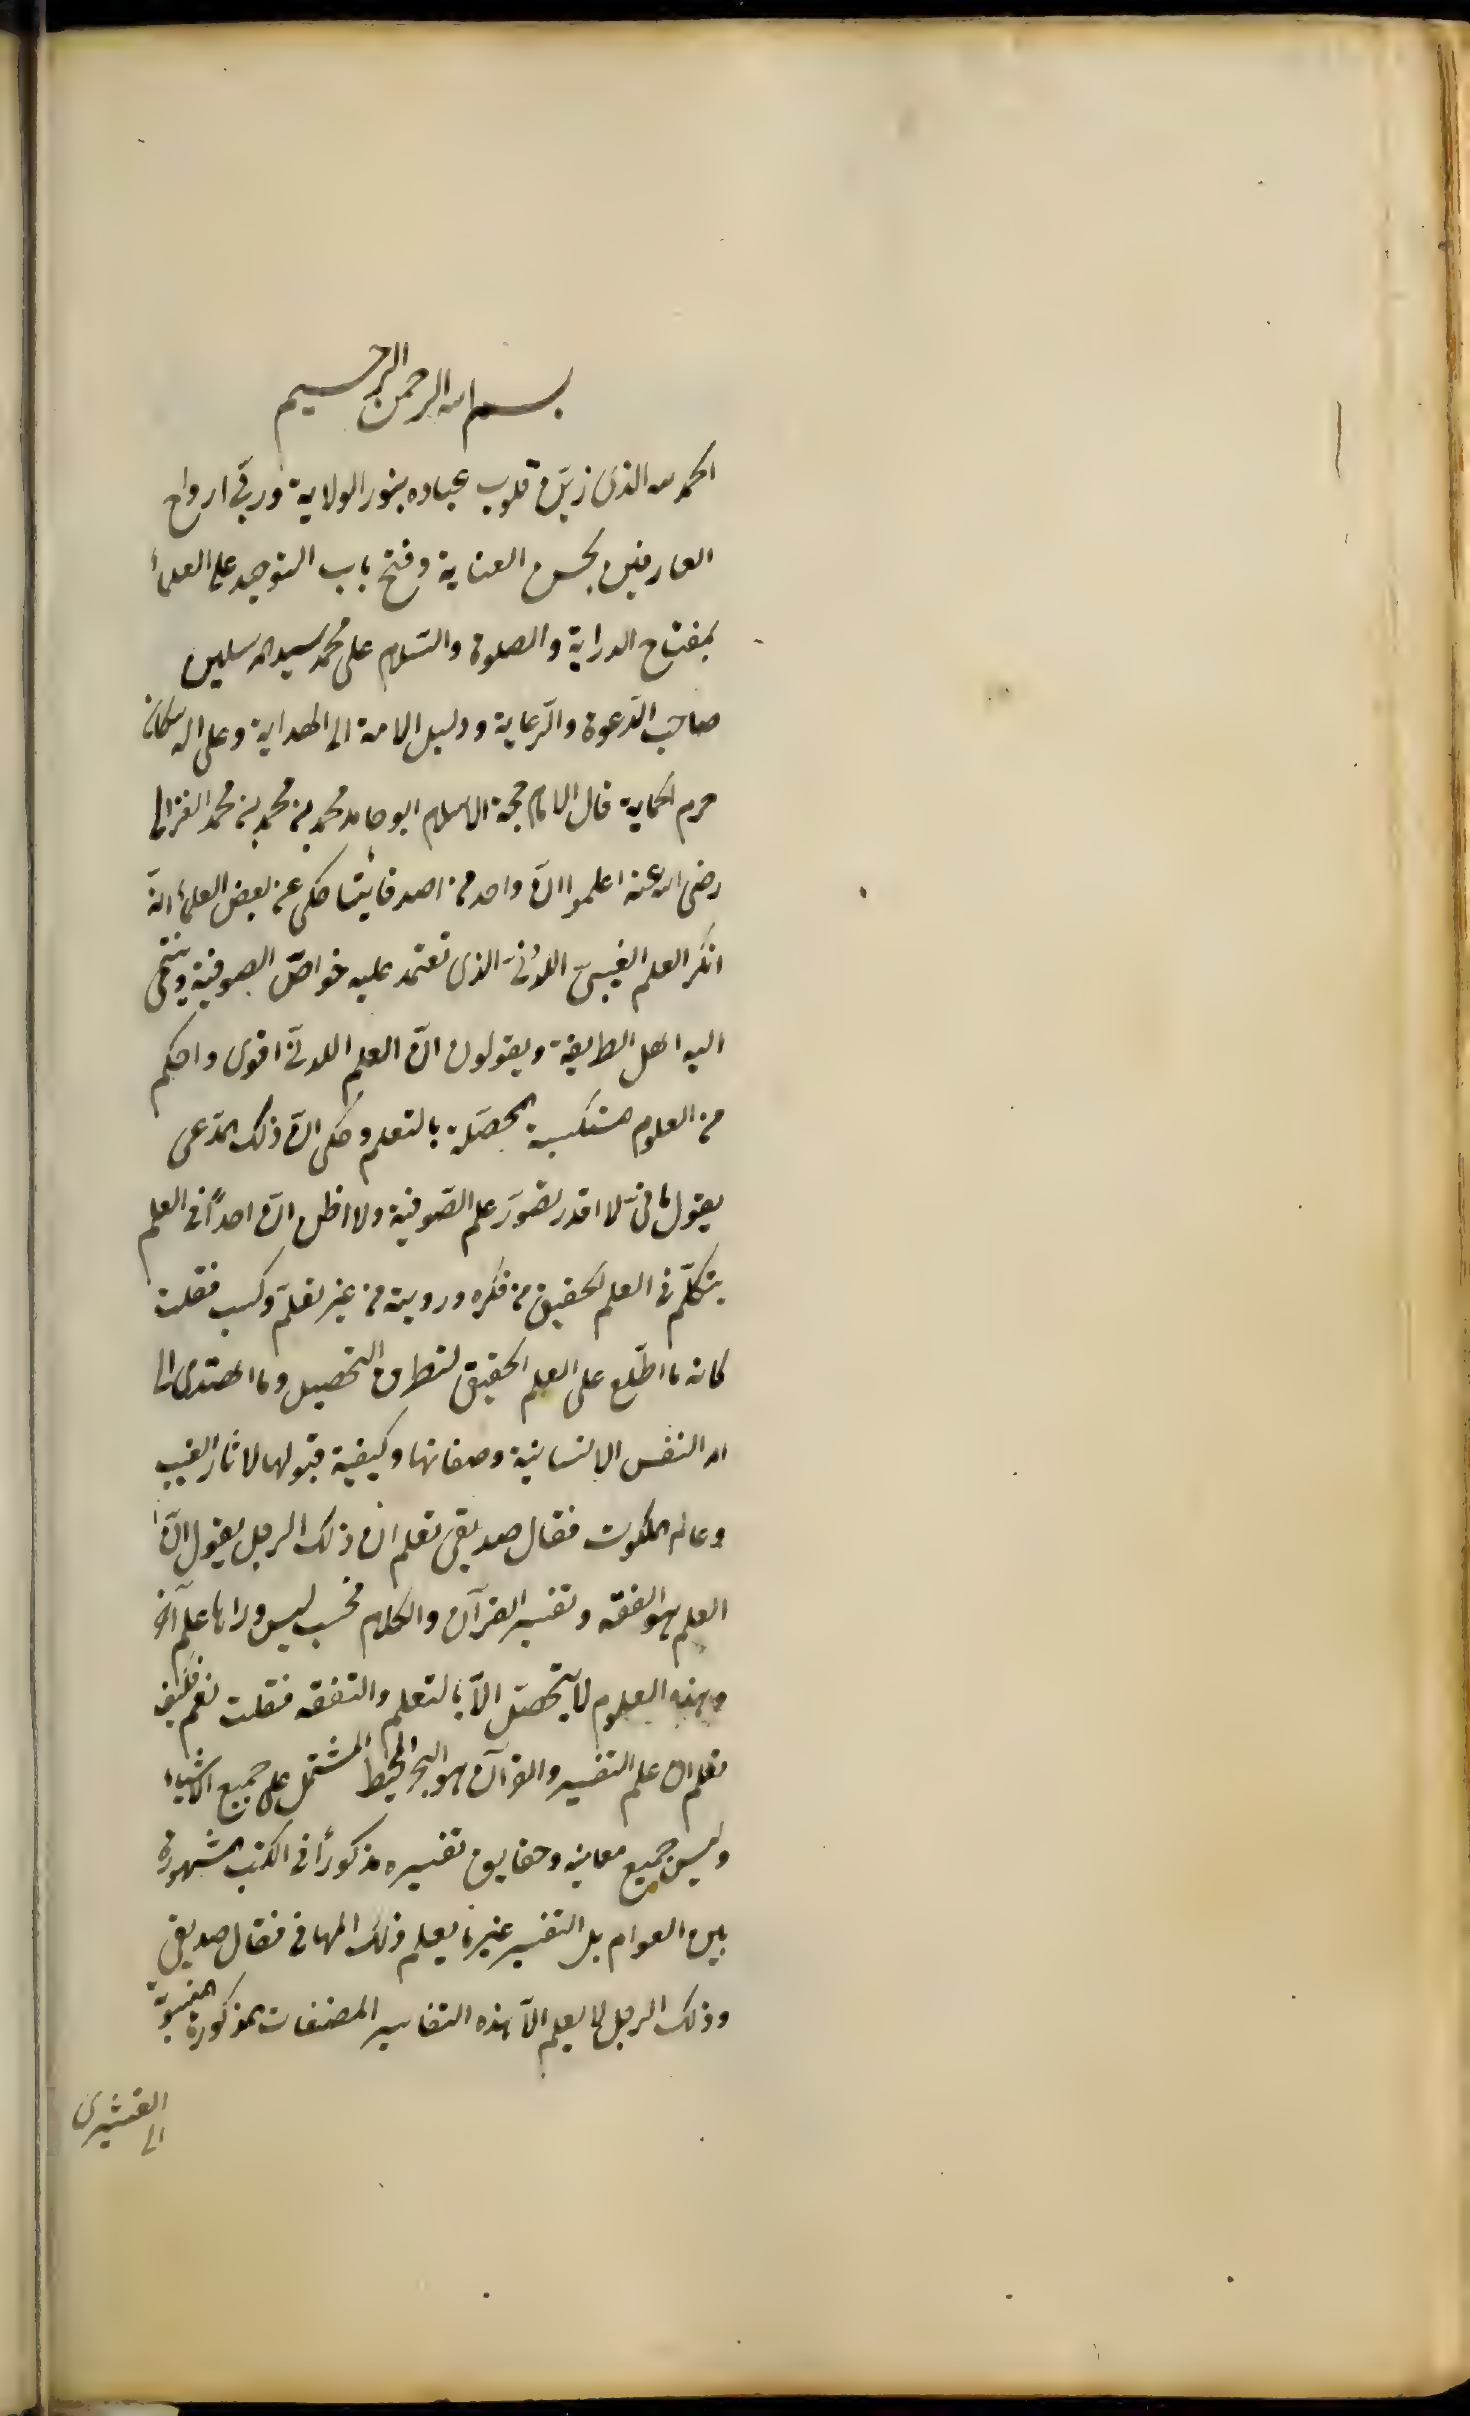 بسم الله الرحمن الرحيم
الحمد لله الذى زيّن قلوب عباده بنور الولاية وربّى ارواح
العارفين بحسن العناية وفتح باب التوحيد على العلماء
بمفتاح الدراية والصلوة والسّلام على محمد سيد المرسلين
صاحب الدّعوة والرّعاية ودليل الامة الى الهداية وعلى اله سكان
حرم الحماية قال الامام حجة الاسلام ابو حامد محمد بن محمد بن محمد الغزالى
رضى الله عنه اعلموا انّ واحد من اصدقائنا حكى عن بعض العلماء انّه
انكر العلم الغيبىّ اللدُنّى الذى تعتمد عليه خواصّ الصوفية وينتمى
اليه اهل الطريقة ويقولون انّ العلم اللدنّى اقوى واحكم
من العلوم المتكسبة المحصّلة بالتعلم وحكى انّ ذلك المدّعى
يقول انّى لا اقدر تصوّر علم الصّوفية ولا اظن انّ احدًا فى العلم
يتكلّم فى العلم الحقيقى من فكره وروية من غير تعلّم وكسب فقلت
كانه ما اطّلع على العلم الحقيقى لتطرق التحصيل وما اهتدى الى
امر النفس الانسانية وصفاتها وكيفية قبولها لاثار الغيب
وعالم الملكوت فقال صديقى تعلم ان ذلك الرجل يقول انّ
العلم هو الفقه وتفسير القرآن والكلام فحسب ليس وراءها علم آخر
وهذه العلوم لا يتحصّل الاّ بالتعلم والتفقه فقلت نعم فكيف
تعلم ان علم التفسير والقرآن هو البحر المحيط المشتمل على جميع الاشياء
وليس جميع معانيه وحقايق تفسيره مذكوراً فى الكتب المشهورة
بين العوام بل التفسير غير ما يعلم ذلك المهافى فقال صديقى
وذلك الرجل لا يعلم الاّ هذه التفاسير المصنفات المذكورة المنسوبة
الى القشيرى